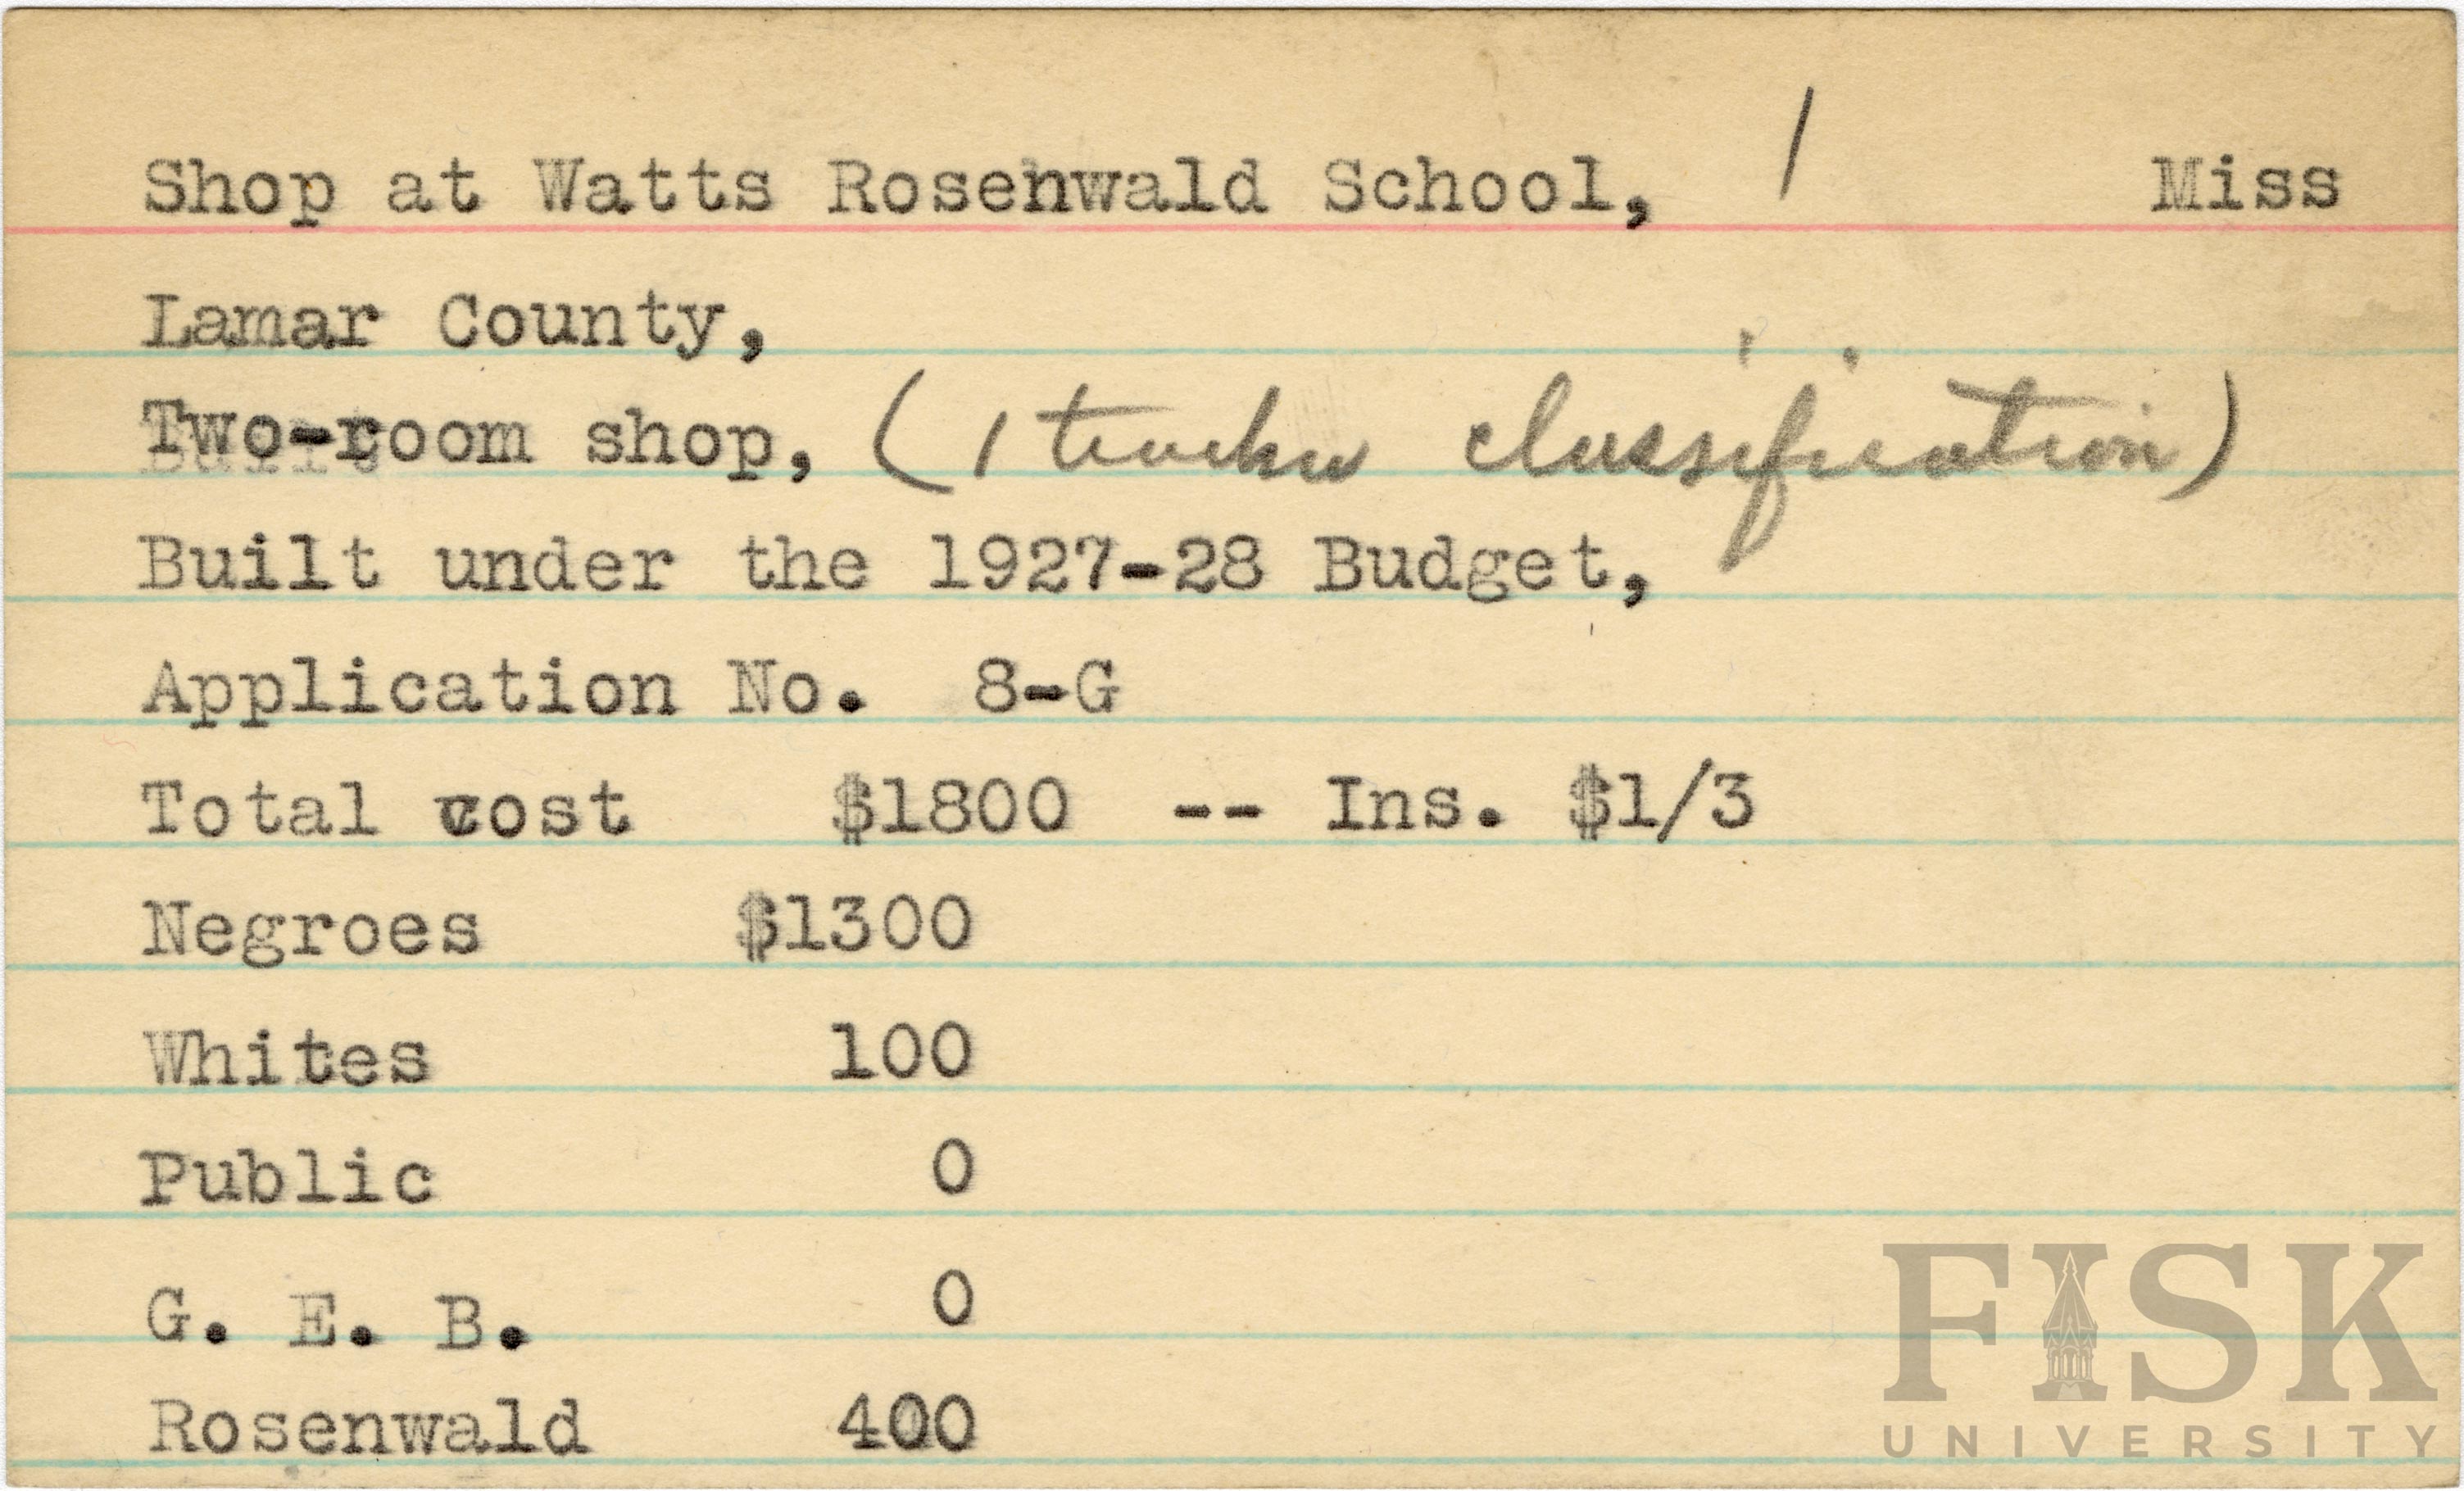 Shop at Watts Rosenwald School, / Miss
Lamar County,
Two-room shop, (1 teacher classification)
Built under the 1927-28 Budget,
Application No. 8-G
Total cost $1800 -- Ins. $1/3
Negroes $1300
Whites 100
Public 0
G. E. B. 0
Rosenwald 400
FISK
UNIVERSITY